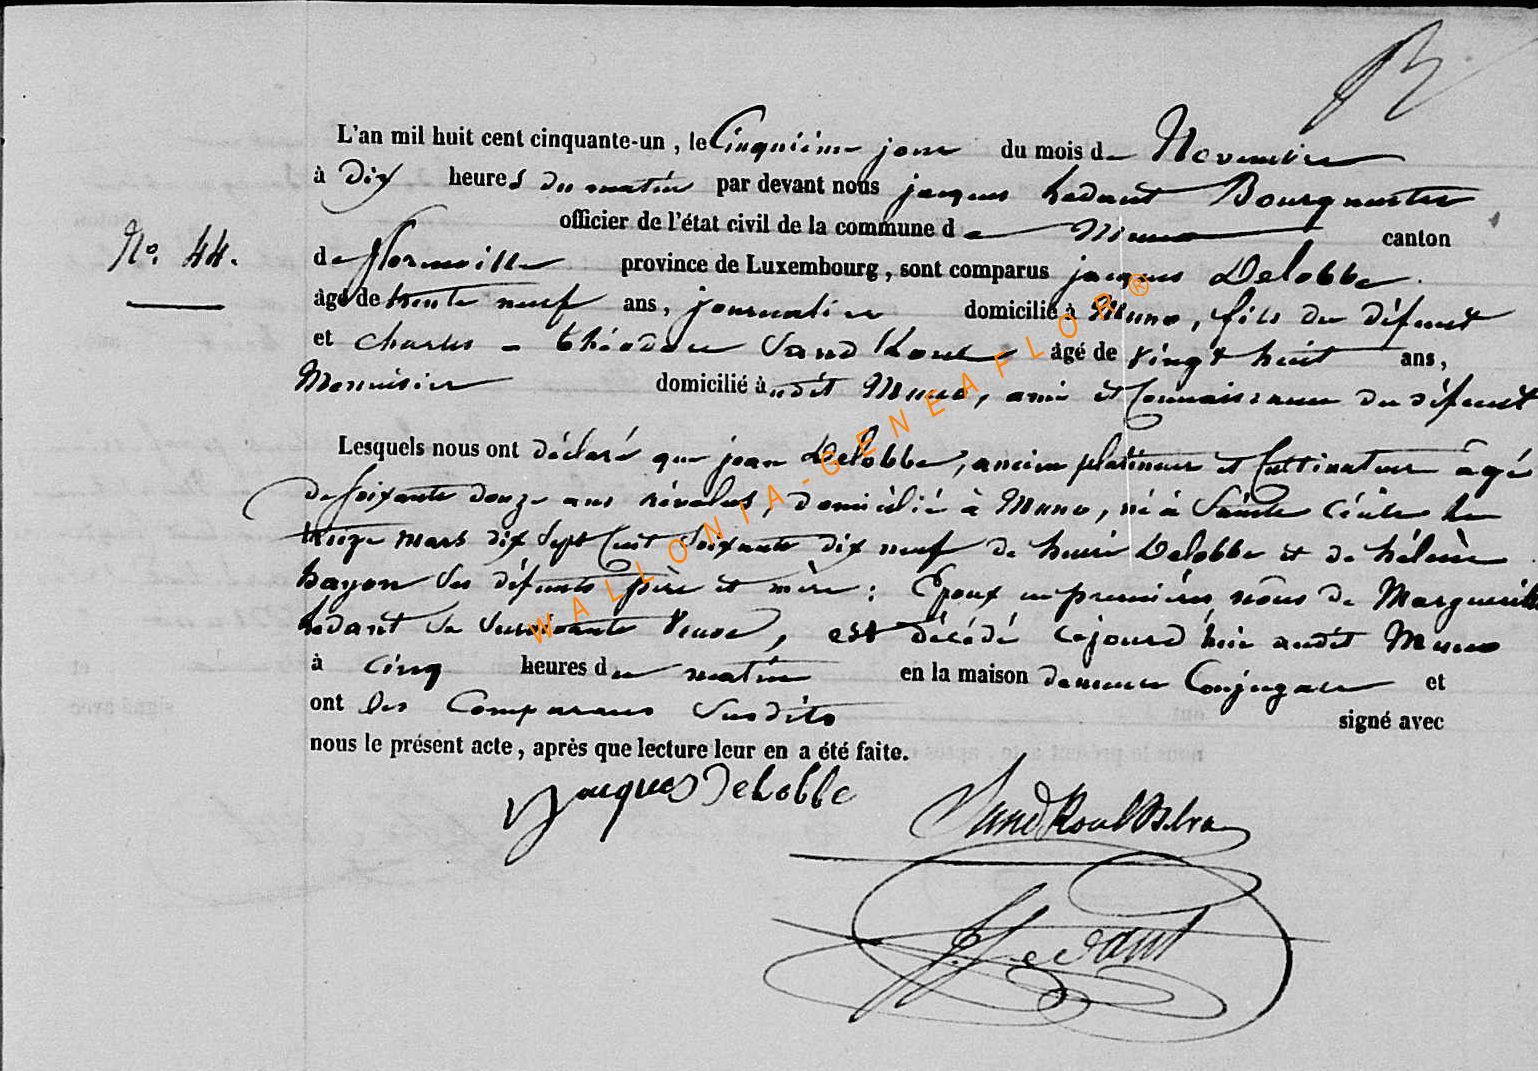 L'an mil huit cent cinquante-un, le Cinquième jour du mois de Novembre
à Dix heures du matin par devant nous jacques hedant Bourgmestre
officier de l'état civil de la commune de Muno canton
No. 44.
de florenville province de Luxembourg, sont comparus jacques Delobbe.
âgé de trente neuf ans, journalier domicilié à Muno, fils du défunt
et charles - théodore Vand âgé de vingt huit ans,
Menuisier domicilié à udit Muno, ami et Connaissance du défunt
Lesquels nous ont déclaré que jean Delobbe, ancien platineur et Cultivateur âgé
de soixante douze ans révolus, domicilié à Muno, né à Sainte Cécile le
mars dix Sept Cent Soixante dix neuf de henri Delobbe et de hélène
hayon Ses défunts père et mère : Epoux en premières nôces de Marguerite
hedant Sa Survivante Veuve, est décédé cejourd'hui audit Muno
à cinq heures du matin en la maison demeure Conjugale et
ont les Comparans Susdits signé avec
nous le présent acte, après que lecture leur en a été faite.
Jacques Delobbe
hedant
WALLONIA-GENEAFLOR®